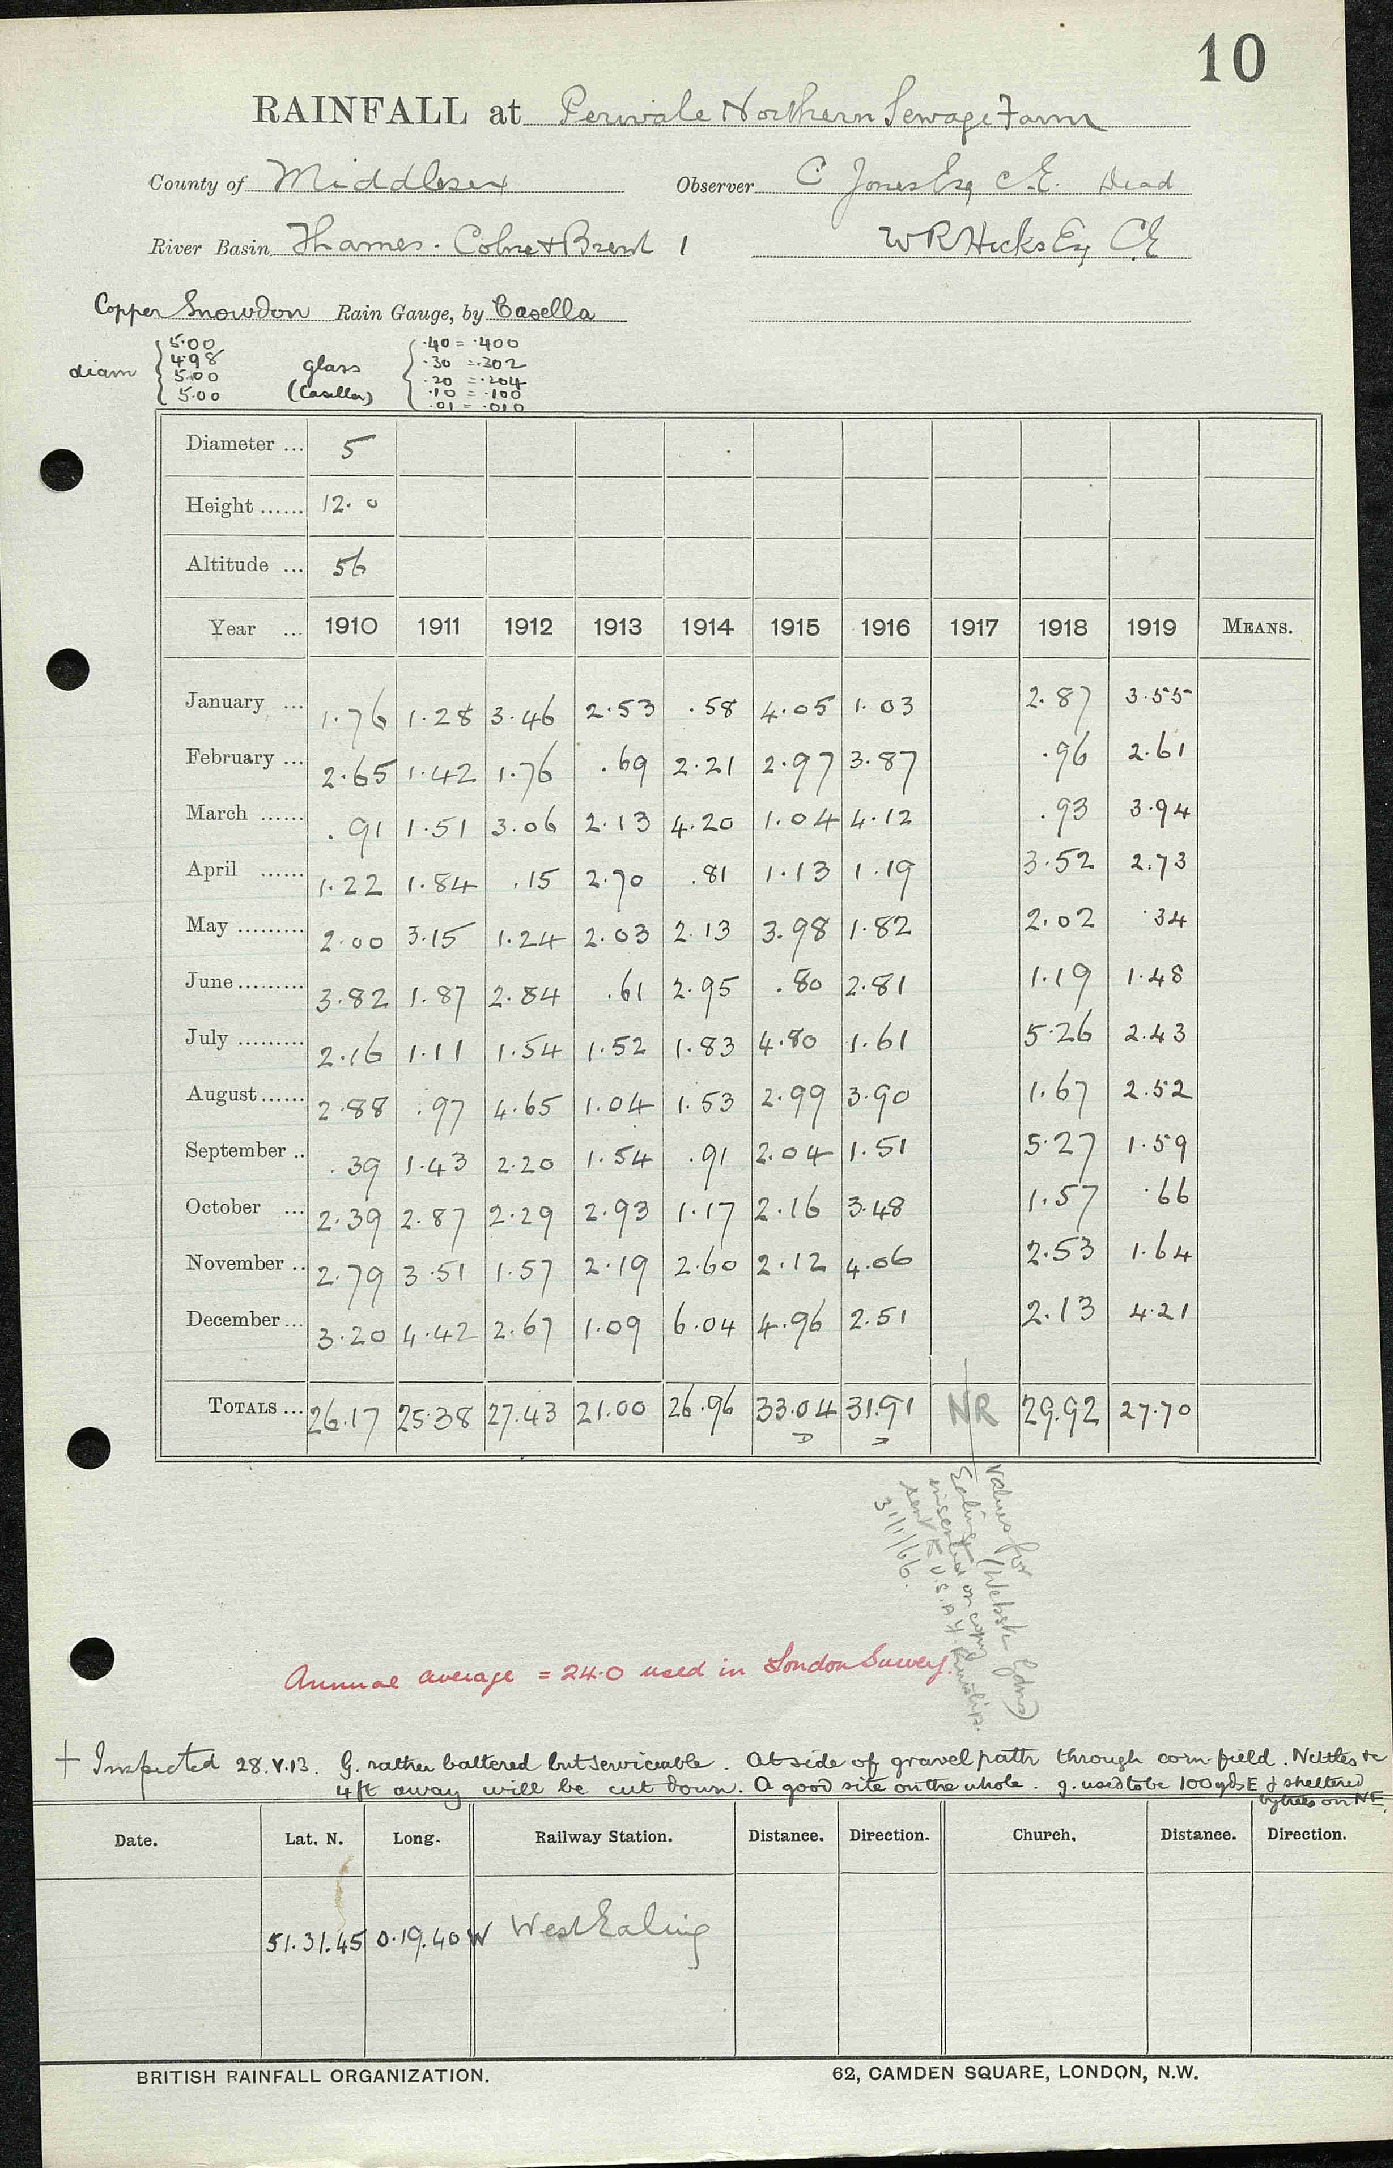 10
RAINFALL at Perivale Northern Sewage Farm
County of Middlesex Observer C Jones Esq C.E. Dead
River Basin Thames. Colne & Brent 1 W R Hicks Esq C.E
Copper Snowdon Rain Gauge, by Casella
diam { 5.00 4.98 5.00 5.00 glass (Casella) { .40 = .400 .30 = .302 .20 = .204 .10 = .100 .01 = .010
Diameter ... 5
Height ...... 12. 0
Altitude ... 56
Year ... 1910 1911 1912 1913 1914 1915 1916 1917 1918 1919 MEANS.
January ... 1.76 1.28 3.46 2.53 .58 4.05 1.03 2.87 3.55
February ... 2.65 1.42 1.76 .69 2.21 2.97 3.87 .96 2.61
March ...... .91 1.51 3.06 2.13 4.20 1.04 4.12 .93 3.94
April ...... 1.22 1.84 .15 2.70 .81 1.13 1.19 3.52 2.73
May ......... 2.00 3.15 1.24 2.03 2.13 3.98 1.82 2.02 .34
June ......... 3.82 1.87 2.84 .61 2.95 .80 2.81 1.19 1.48
July ......... 2.16 1.11 1.54 1.52 1.83 4.80 1.61 5.26 2.43
August ...... 2.88 .97 4.65 1.04 1.53 2.99 3.90 1.67 2.52
September .. .39 1.43 2.20 1.54 .91 2.04 1.51 5.27 1.59
October ... 2.39 2.87 2.29 2.93 1.17 2.16 3.48 1.57 .66
November .. 2.79 3.51 1.57 2.19 2.60 2.12 4.06 2.53 1.64
December ... 3.20 4.42 2.67 1.09 6.04 4.96 2.51 2.13 4.21
TOTALS ... 26.17 25.38 27.43 21.00 26.96 33.04 31.91 NR 29.92 27.70
Values for
Ealing (Webster Gdns)
inserted on copy
sent to U.S.A.F. Ruislip.
31/1/66.
Annual average = 24.0 used in London Survey.
+ Inspected 28.V.13. G. rather battered but serviceable. At side of gravel path through corn field. Nettles &c
4 ft away will be cut down. A good site on the whole. g. used to be 100 yds E & sheltered
by trees on NE.
Date. Lat. N. Long. Railway Station. Distance. Direction. Church. Distance. Direction.
51.31.45 0.19.40 W West Ealing
BRITISH RAINFALL ORGANIZATION. 62, CAMDEN SQUARE, LONDON, N.W.